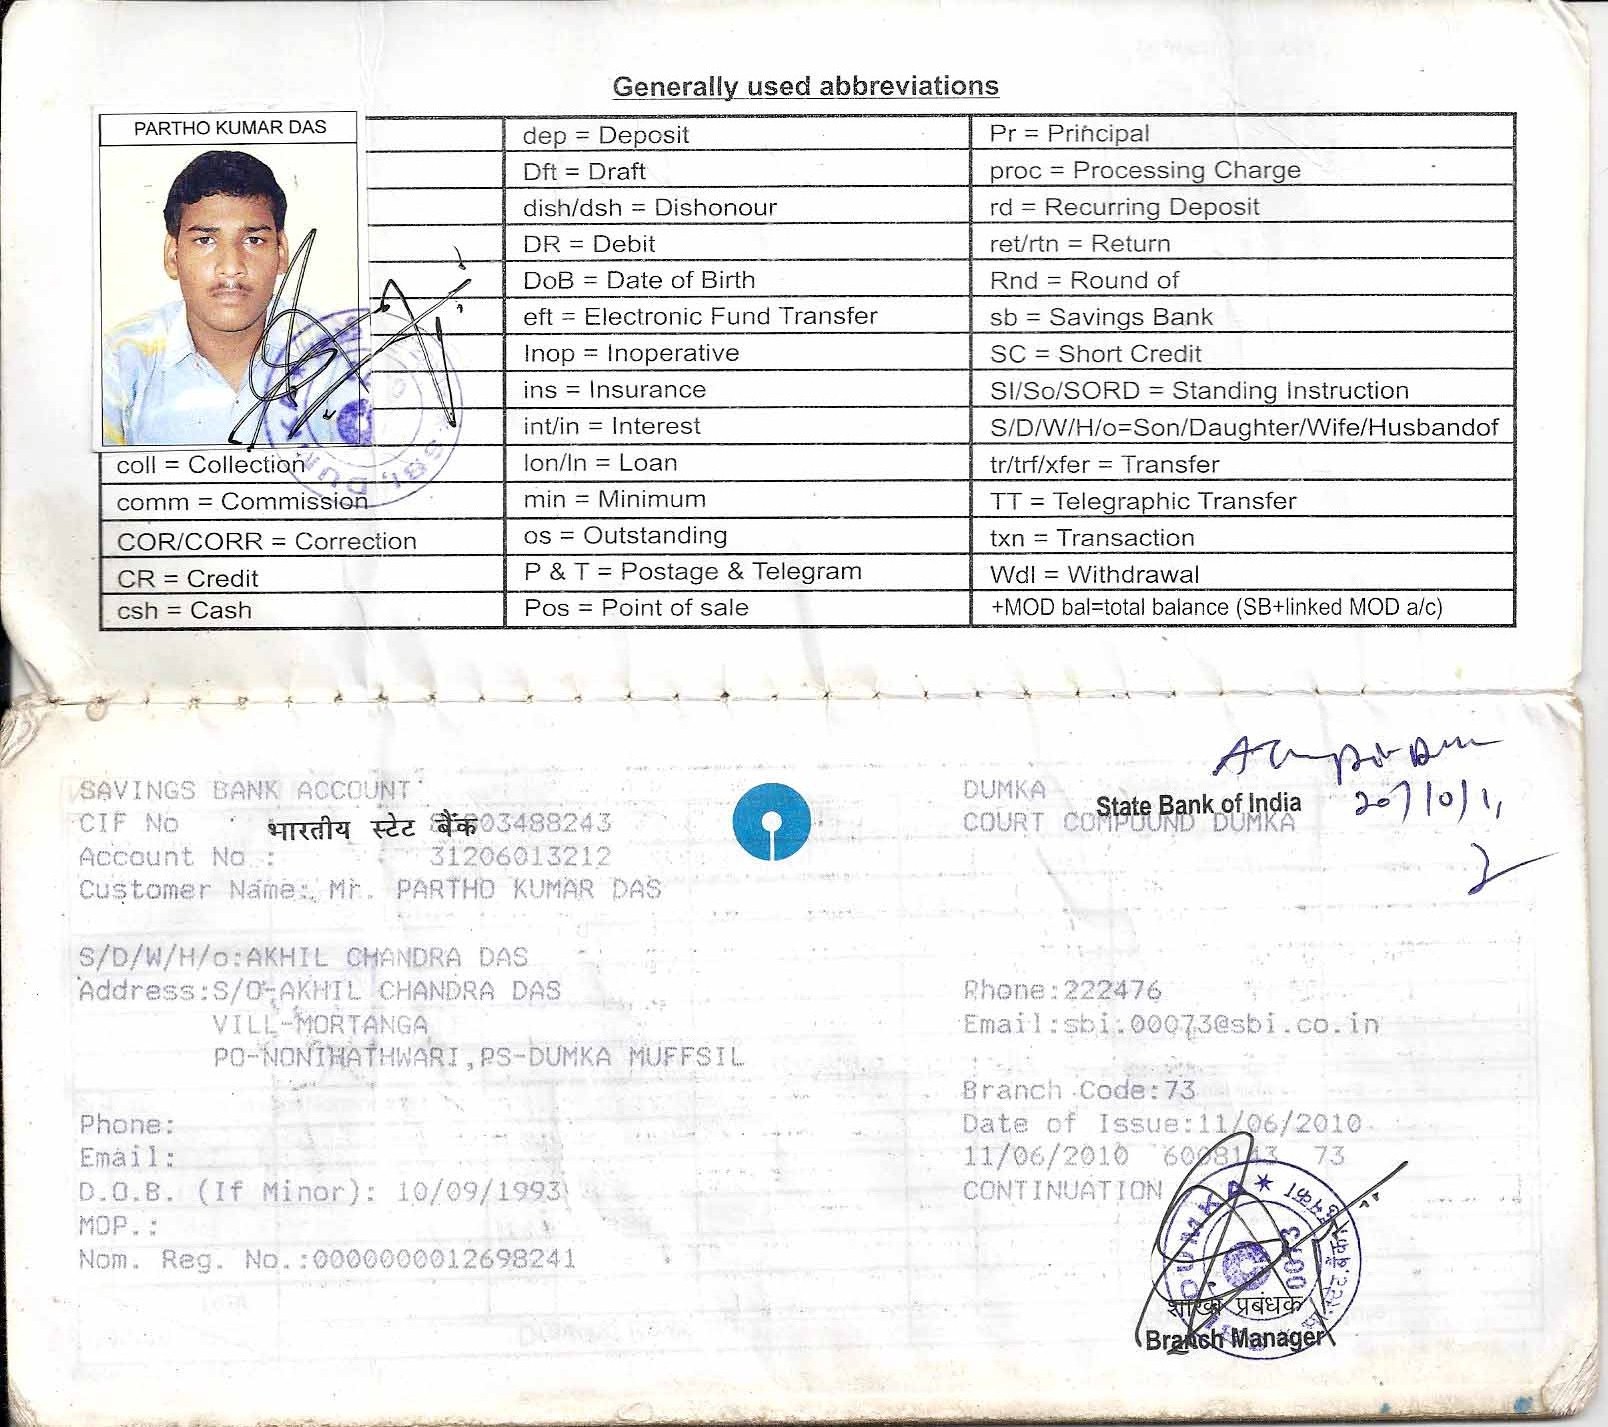 Generally used abbreviations
PARTHO KUMAR DAS
coll = Collection
comm = Commission
COR/CORR = Correction
CR = Credit
csh = Cash
dep = Deposit
Dft = Draft
dish/dsh = Dishonour
DR = Debit
DoB = Date of Birth
eft = Electronic Fund Transfer
Inop = Inoperative
ins = Insurance
int/in = Interest
lon/ln = Loan
min = Minimum
os = Outstanding
P & T = Postage & Telegram
Pos = Point of sale
Pr = Principal
proc = Processing Charge
rd = Recurring Deposit
ret/rtn = Return
Rnd = Round of
sb = Savings Bank
SC = Short Credit
SI/So/SORD = Standing Instruction
S/D/W/H/o=Son/Daughter/Wife/Husbandof
tr/trf/xfer = Transfer
TT = Telegraphic Transfer
txn = Transaction
Wdl = Withdrawal
+MOD bal=total balance (SB+linked MOD a/c)
SBI, DUMKA
SAVINGS BANK ACCOUNT
CIF No 03488243
भारतीय स्टेट बैंक
Account No : 31206013212
Customer Name: Mr. PARTHO KUMAR DAS
S/D/W/H/o:AKHIL CHANDRA DAS
Address:S/O-AKHIL CHANDRA DAS
VILL-MORTANGA
PO-NONIHATHWARI,PS-DUMKA MUFFSIL
Phone:
Email:
D.O.B. (If Minor): 10/09/1993
MOP.:
Nom. Reg. No.:0000000012698241
DUMKA
State Bank of India
COURT COMPOUND DUMKA
Phone:222476
Email:sbi.00073@sbi.co.in
Branch Code:73
Date of Issue:11/06/2010
11/06/2010 6008143 73
CONTINUATION
DUMKA
शाखा प्रबंधक
Branch Manager